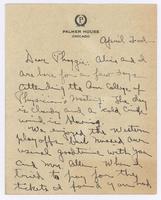 P
PALMER HOUSE
CHICAGO
April 2nd
Dear Phoggie: Alice and I
are here for a few days
attending the Am College of
Physicians Meeting. The day
is cloudy and a cold
wind is blowing
We enjoyed the Western
playoffs but missed our
usual good time with you
and Mrs Allen. When I
tried to pay for the
tickets I found you had